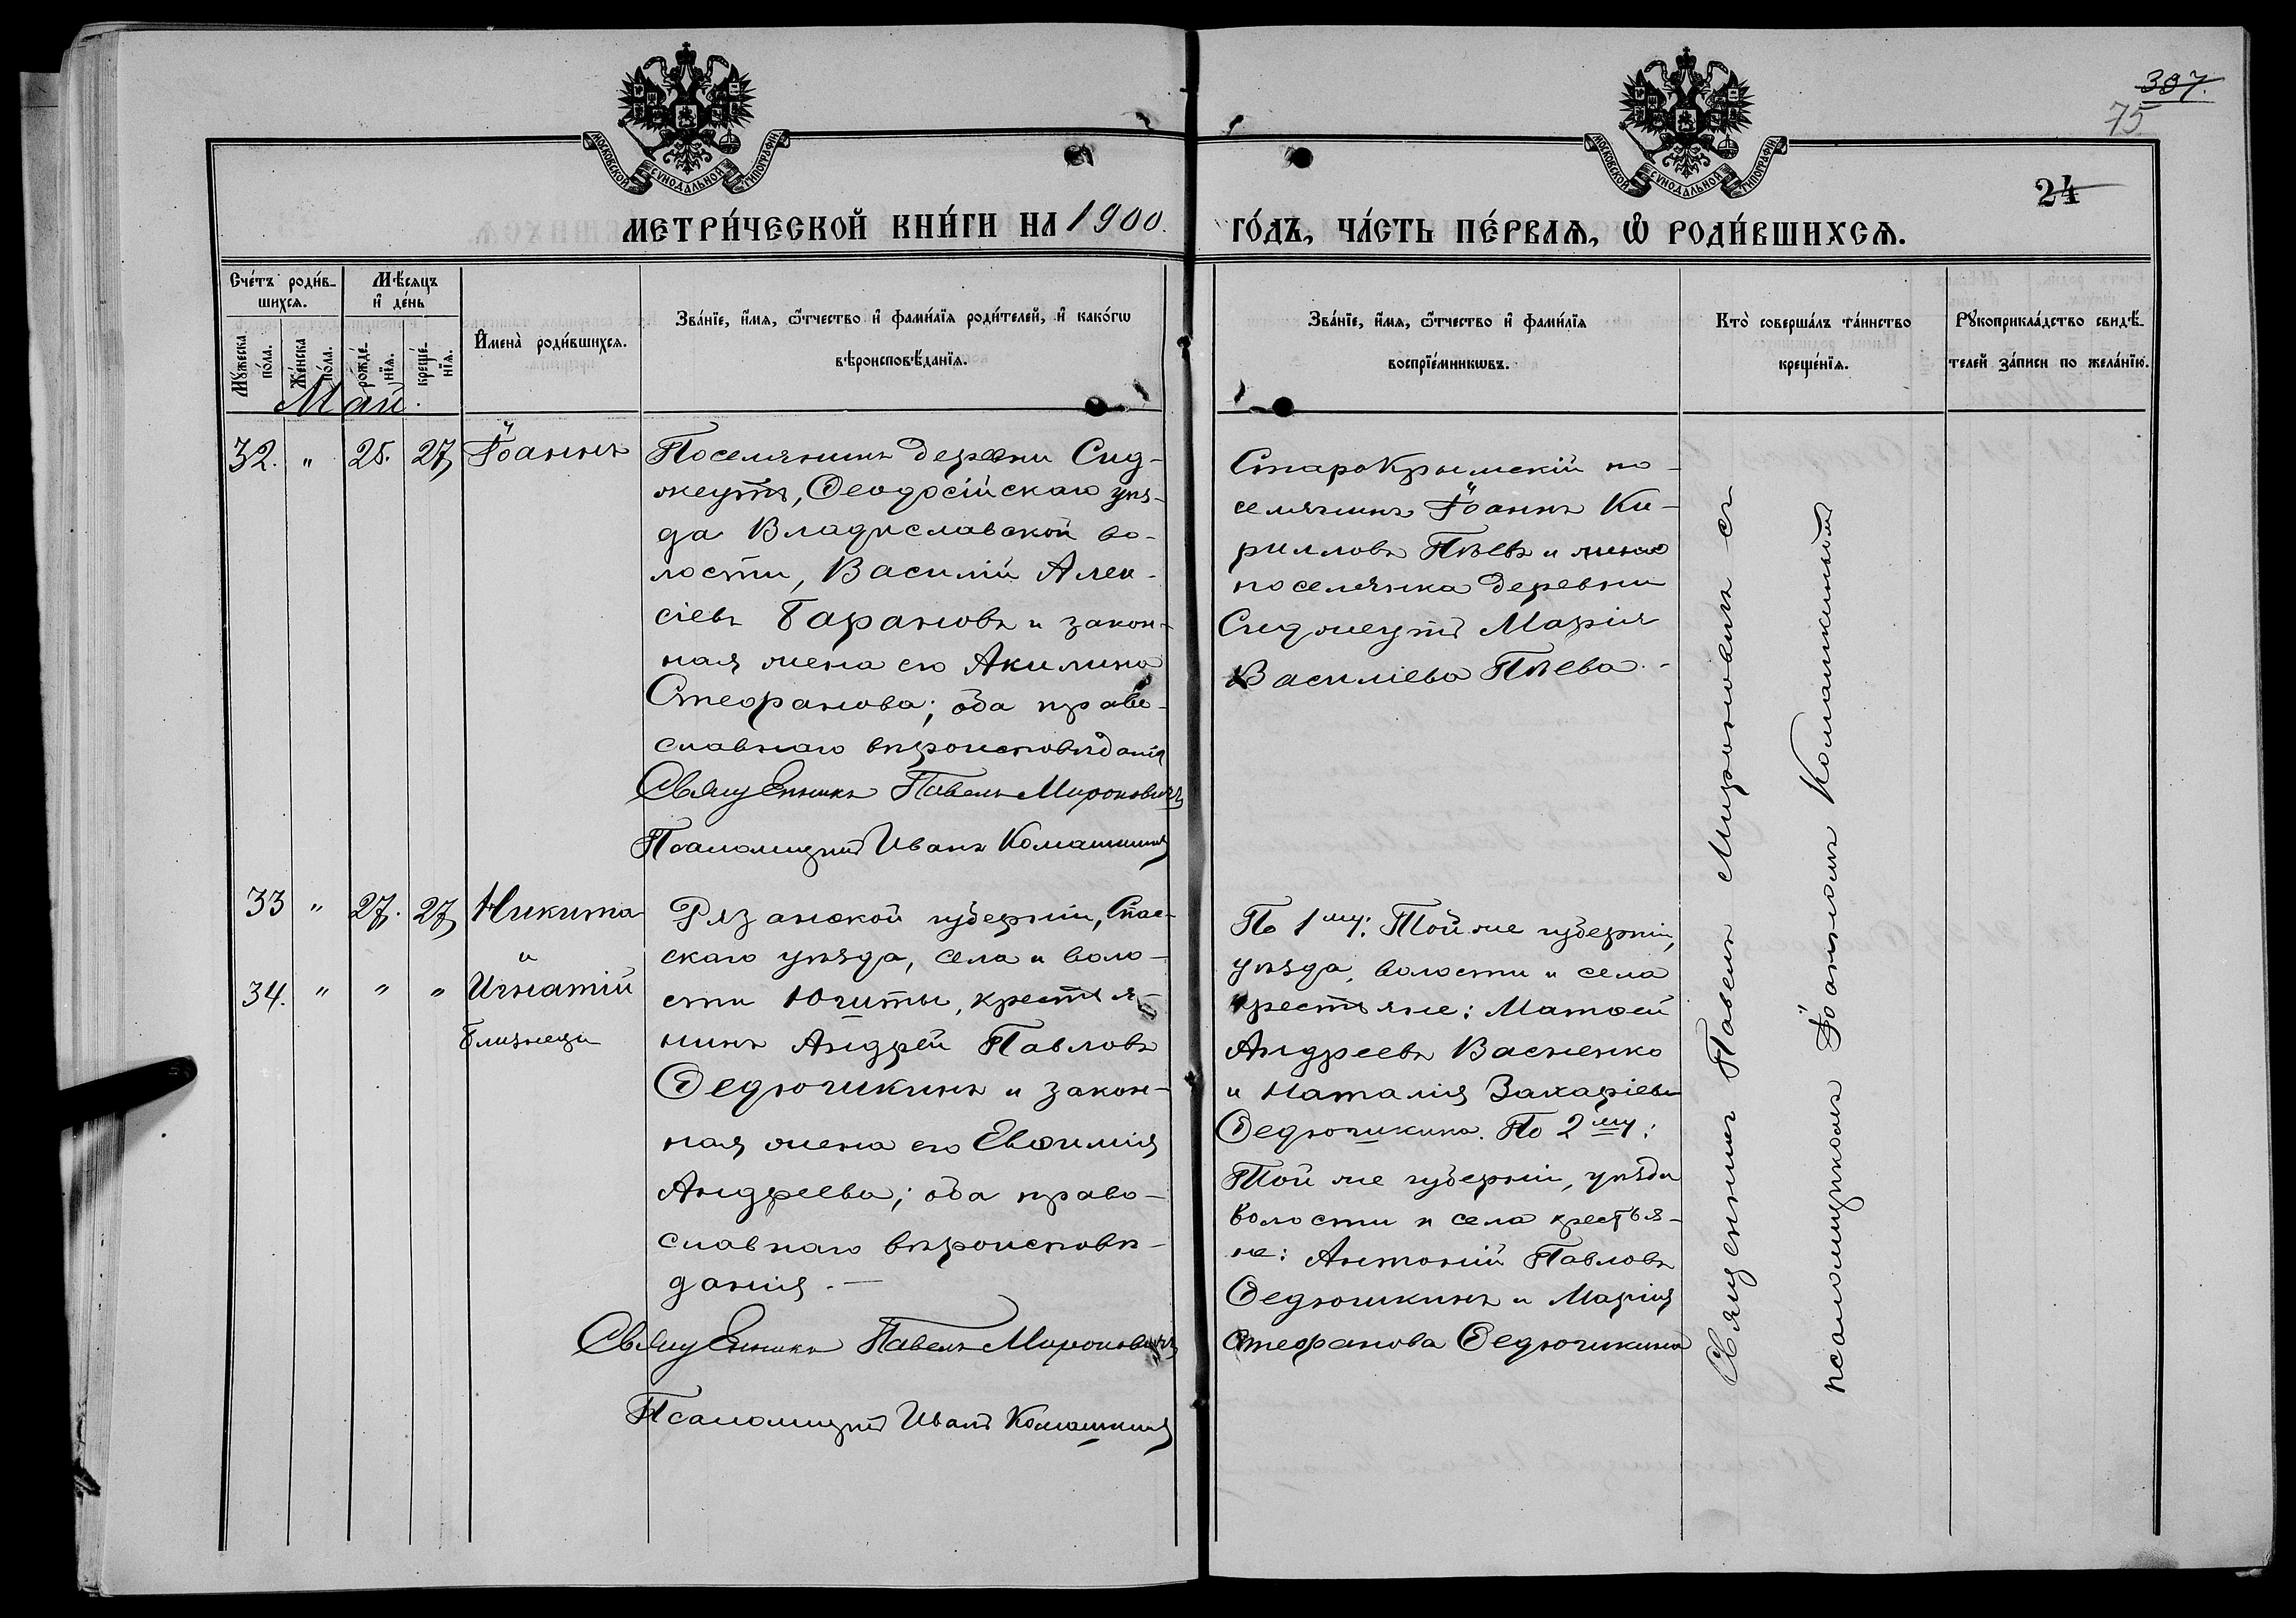 307.
75
МОСКОВСКОЙ СѴНОДАЛЬНОЙ ТИПОГРАФІИ
МОСКОВСКОЙ СѴНОДАЛЬНОЙ ТИПОГРАФІИ
24
МЕТРИ́ЧЕСКОЙ КНИ́ГИ НА 1900.
ГО́ДЪ, ЧА́СТЬ ПЕ́РВАѦ, Ѡ҆ РОДИ́ВШИХСѦ.
Сче́тъ роди́в-
шихсѧ.
Мꙋ́жеска по́ла.
Же́нска по́ла.
Мѣ́сѧцъ
и҆ де́нь
рожде́-
нїѧ.
креще́-
нїѧ.
И҆мена̀ роди́вшихсѧ.
Зва́нїе, и҆́мѧ, ѻ҆́тчество и҆ фами́лїѧ роди́телей, и҆ како́гѡ
вѣроисповѣ́данїѧ.
Зва́нїе, и҆́мѧ, ѻ҆́тчество и҆ фами́лїѧ
воспрїе́мникѡвъ.
Кто̀ соверша́лъ та́инство
креще́нїѧ.
Рꙋкоприкла́дство свидѣ́-
телей за́писи по жела́нїю.
Май.
32. " 25. 27 Іоаннъ
Поселянинъ деревни Сид-
жеутъ, Ѳеодосійскаго уѣз-
да Владиславской во-
лости, Василій Алек-
сіевъ Барановъ и закон-
ная жена его Акилина
Стефанова; оба право-
славнаго вѣроисповѣданія
Священникъ Павелъ Мироновичъ
Псаломщикъ Иванъ Комашкинъ
СтароКрымскій по-
селянинъ Іоаннъ Ки-
рилловъ Пѣевъ и
поселянка деревни
Сиджеутъ Марія
Василіева Пѣева.-
33 " 27. 27 Никита
и
34. " " " Игнатій
близнецы
Рязанской губерніи, Спас-
скаго уѣзда, села и воло-
сти Юшты, крестья-
нинъ Андрей Павловъ
Ѳедюшкинъ и закон-
ная жена его Евѳимія
Андреева; оба право-
славнаго вѣроисповѣ-
данія.—
Священникъ Павелъ Мироновичъ
Псаломщикъ Иванъ Комашкинъ
По 1му: Той же губерніи,
уѣзда, волости и села
крестьяне: Матѳей
Андреевъ Васненко
и Наталія Захаріева
Ѳедюшкина. По 2му:
Той же губерніи, уѣзда
волости и села крестья-
не: Антоній Павловъ
Ѳедюшкинъ и Марія
Стефанова Ѳедюшкина
Священникъ Павелъ Мироновичъ съ
псаломщикомъ Іоанномъ Комашкинымъ